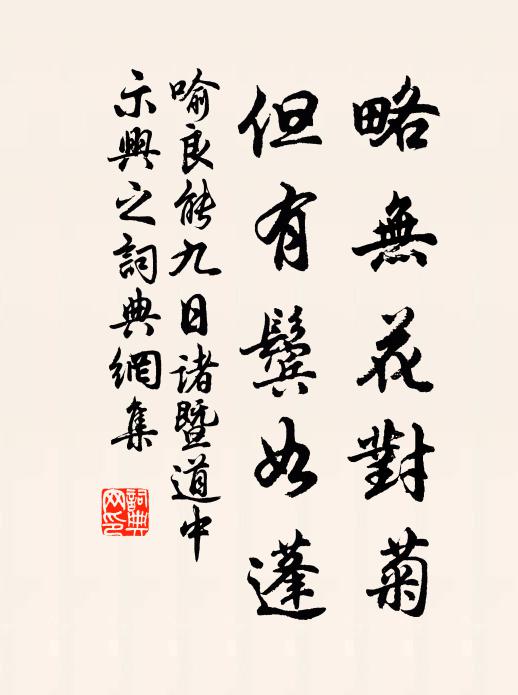 略無花對菊
但有鬢如蓬
喻良能九日諸暨道中
示興之詞典網集
詞典
网印